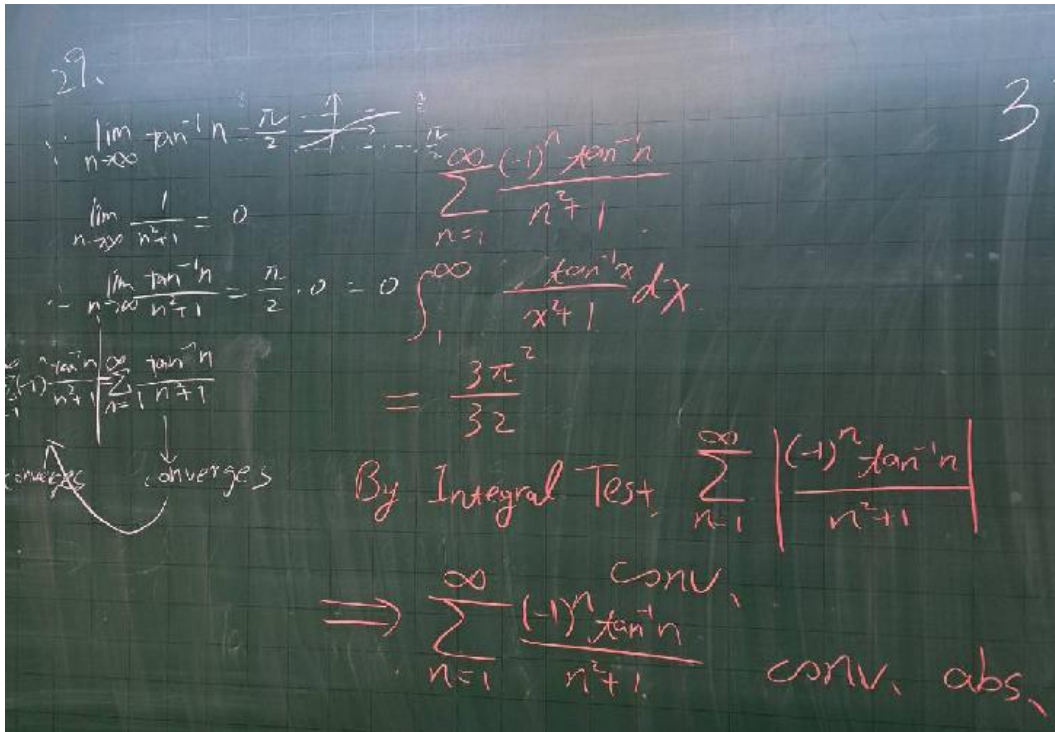 29.
∵ lim n→∞ tan⁻¹ n = π/2
lim n→∞ 1/(n²+1) = 0
∴ lim n→∞ tan⁻¹n/(n²+1) = π/2 · 0 = 0
(-1)ⁿ tan⁻¹n/(n²+1) ∑ n=1 ∞ tan⁻¹n/(n²+1)
converges converges
3
∑ n=1 ∞ (-1)ⁿ tan⁻¹n/(n²+1)
∫₁^∞ tan⁻¹x/(x²+1) dx
= 3π²/32
By Integral Test, ∑ n=1 ∞ |(-1)ⁿ tan⁻¹n/(n²+1)|
conv.
⟹ ∑ n=1 ∞ (-1)ⁿ tan⁻¹n/(n²+1) conv. abs.